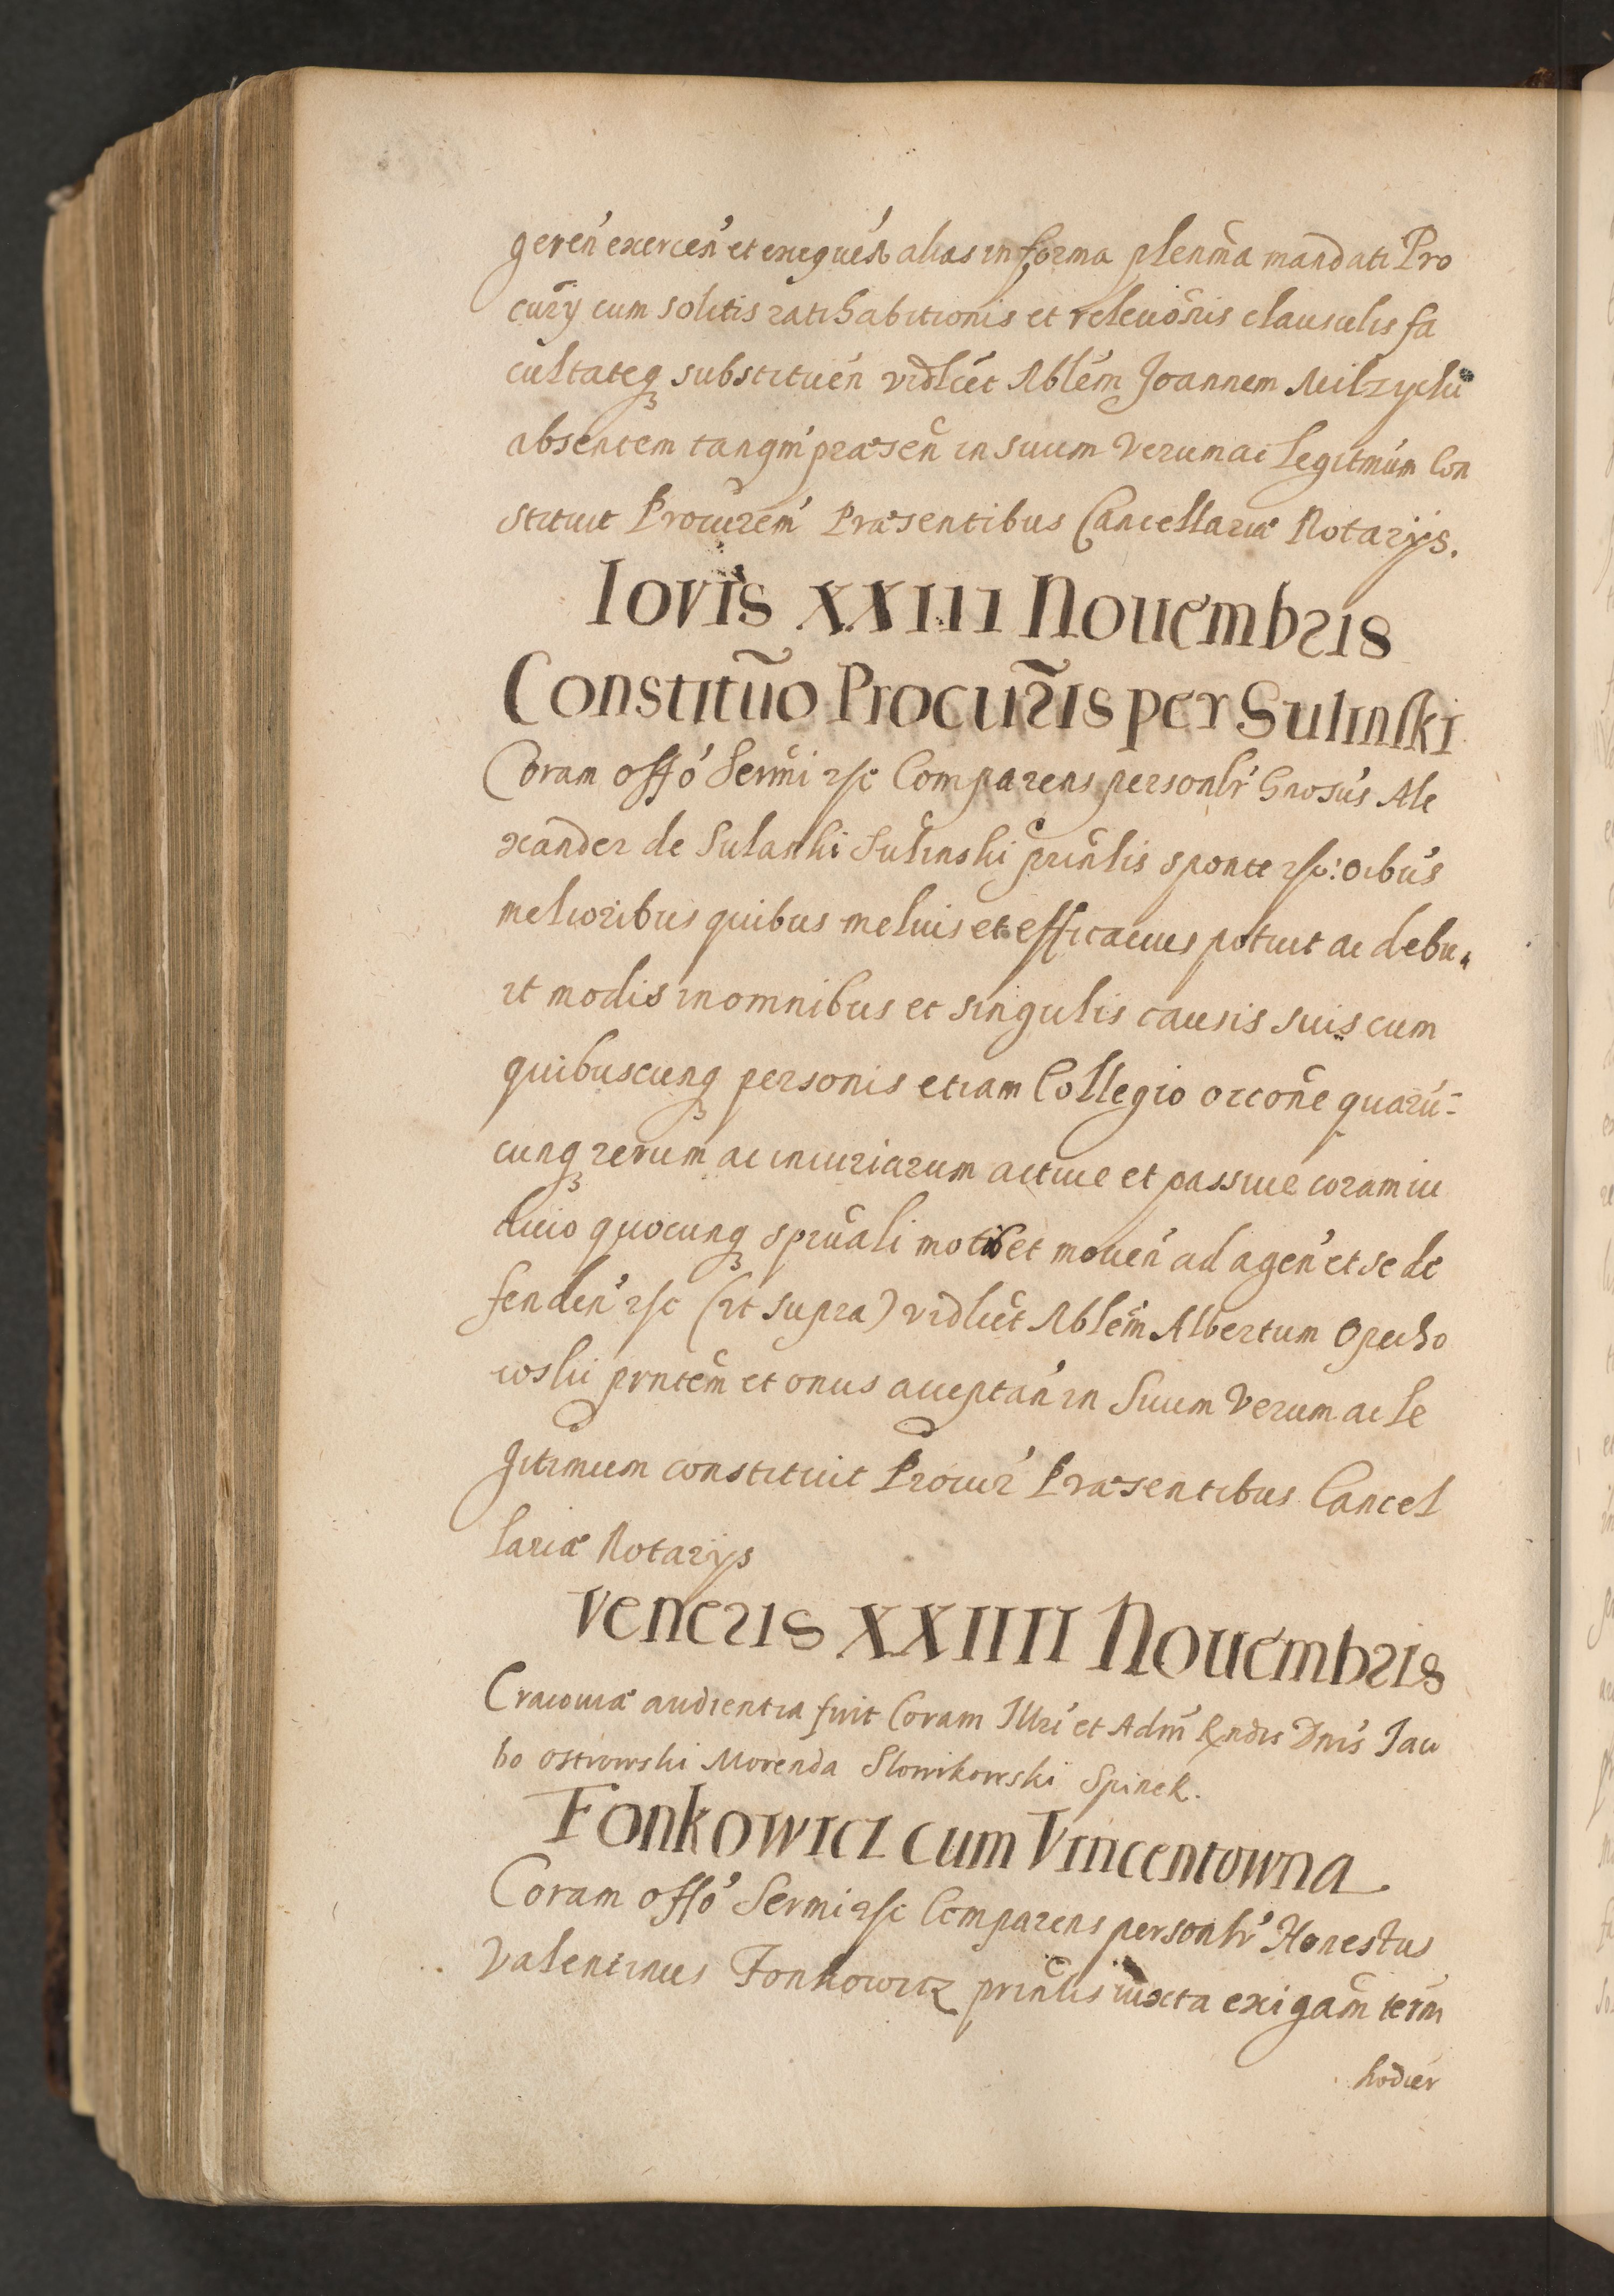 geren̄ exercen̄ et exequen̄ alias in forma plenma mandati Pro
curÿ cum solitis ratihabitionis et releuoñis clausulis fa
cultateq substituen̄ vidlicet Nblem Joannem Milzycki
absentem tanqm̄ præsen̄ in suum Verum ac Legitmum Con
stituit Procurem̄ Præsentibus Cancellariæ Notarijs.
Iovis XXIII Nouembris
Constitũo Procur̃is per Sulinski
Coram offō Sermi rsc Comparens personlr̄ Gnosus Ale
xander de Sulanki Sulinski prinlis sponte rsc: oibus
melioribus quibus melius et efficacius potuit ac debu
it modis in omnibus et singulis causis suis cum
quibuscunq personis etiam Collegio occoñe quarū-
cunq rerum ac iniuriarum actiue et passiue coram iu
dicio quocunq spirūali motis et mouen̄ ad agen̄ et se de
fenden̄ rsc (ut supra) vidlicet Nblem̄ Albertum Opecho
wski prntem̄ et onus acceptan̄ in Suum Verum ac Le
gitimum constituit Procur̄ Præsentibus Cancel
lariæ Notarÿs
Veneris XXIIII Nouembris
Cracouiæ audientia fuit Coram Illri et Adm̄ Rndis Dnis Jaco
bo Ostrowski Morenda Slowikowski Spinek.
Fonkowicz cum Vincentowna
Coram offō Sermi rsc Comparens personlr̄ Honestus
Valentinus Fonkowicz prinlis iuxta exigam̄ term̄
hodier